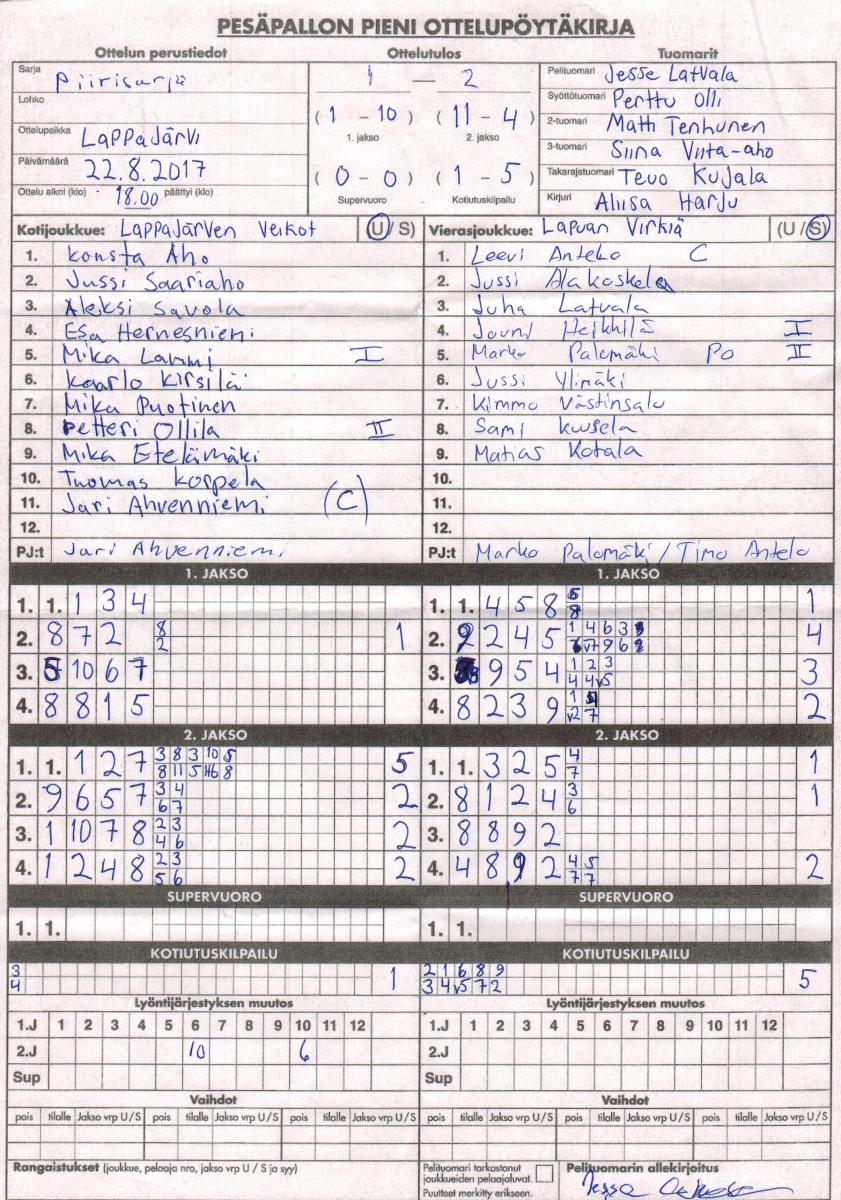 PESÄPALLON PIENI OTTELUPÖYTÄKIRJA
Ottelun perustiedot
Sarja Piirisarja
Lohko
Ottelupaikka Lappajärvi
Päivämäärä 22.8.2017
Ottelu alkoi (klo) 18.00 päättyi (klo)
Ottelutulos
1 — 2
( 1 - 10 ) ( 11 - 4 )
1. jakso 2. jakso
( 0 - 0 ) ( 1 - 5 )
Supervuoro Kotiutuskilpailu
Tuomarit
Pelituomari Jesse Latvala
Syöttötuomari Perttu Olli
2-tuomari Matti Tenhunen
3-tuomari Siina Viita-aho
Takarajatuomari Teuvo Kujala
Kirjuri Aliisa Harju
Kotijoukkue: Lappajärven Veikot (U / S)
1. Konsta Aho
2. Jussi Saariaho
3. Aleksi Savola
4. Esa Hernesniemi
5. Mika Lammi I
6. Kaarlo Kirsilä
7. Mika Puotinen
8. Petteri Ollila II
9. Mika Etelämäki
10. Tuomas Korpela
11. Jari Ahvenniemi (C)
12.
PJ:t Jari Ahvenniemi
Vierasjoukkue: Lapuan Virkiä (U / S)
1. Leevi Antelo C
2. Jussi Alakoskela
3. Juha Latvala
4. Jouni Heikkilä I
5. Marko Palomäki Po II
6. Jussi Ylimäki
7. Kimmo Västinsalo
8. Sami Kuusela
9. Matias Kotala
10.
11.
12.
PJ:t Marko Palomäki / Timo Antelo
1. JAKSO
1. 1. 1 3 4
2. 8 7 2 8 1
2
3. 5 10 6 7
4. 8 8 1 5
2. JAKSO
1. 1. 1 2 7 3 8 3 10 5 5
8 11 5 6 8
2. 9 6 5 7 3 4 2
6 7
3. 1 10 7 8 2 3 2
4 6
4. 1 2 4 8 2 3 2
5 6
SUPERVUORO
1. 1.
KOTIUTUSKILPAILU
3 1
4
1. JAKSO
1. 1. 4 5 8 1
8
2. 2 2 4 5 1 4 6 3 4
v7 9 6
3. 9 5 4 1 2 3 3
4 4 v5
4. 8 2 3 9 1 2
v2 7
2. JAKSO
1. 1. 3 2 5 4 1
7
2. 8 1 2 4 3 1
6
3. 8 8 9 2
4. 4 8 9 2 4 5 2
7 7
SUPERVUORO
1. 1.
KOTIUTUSKILPAILU
2 1 6 8 9 5
3 4 v5 7 2
Lyöntijärjestyksen muutos
1.J 1 2 3 4 5 6 7 8 9 10 11 12
2.J 10 6
Sup
Lyöntijärjestyksen muutos
1.J 1 2 3 4 5 6 7 8 9 10 11 12
2.J
Sup
Vaihdot
pois tilalle Jakso vrp U/S pois tilalle Jakso vrp U/S pois tilalle Jakso vrp U/S
Vaihdot
pois tilalle Jakso vrp U/S pois tilalle Jakso vrp U/S pois tilalle Jakso vrp U/S
Rangaistukset (joukkue, pelaaja nro, jakso vrp U / S ja syy)
Pelituomari tarkastanut
joukkueiden pelaajaluvat.
Puutteet merkitty erikseen.
Pelituomarin allekirjoitus
Jesse